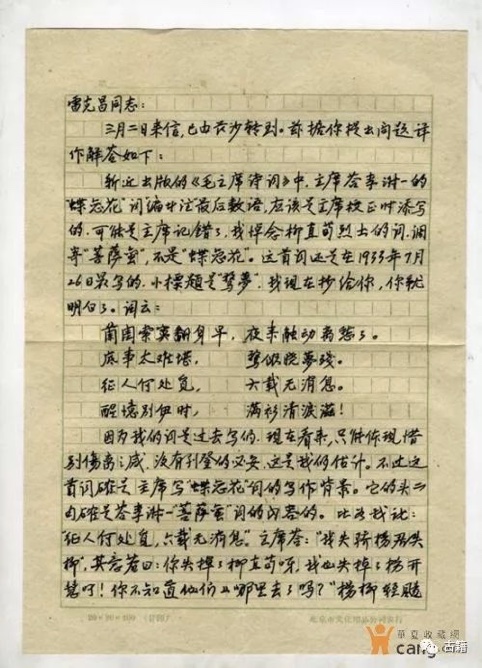 雷克昌同志:
三月二日来信,已由长沙转到。兹据你提出问题详
作解答如下:
新近出版的《毛主席诗词》中,主席答李淑一的
"蝶恋花"词编中注最后数语,应该是主席校正时添写
的,可能是主席记错了,我悼念柳直荀烈士的词,调
寄"菩萨蛮",不是"蝶恋花"。这首词还是在1933年7月
26日晨写的,小标题是"惊梦",我现在抄给你,你就
明白了。词云:
兰闺索寞翻身早,夜来触动离愁了。
底事太难堪,惊侬晓梦残。
征人何处觅,六载无消息。
醒忆别伊时,满衫清泪滋!
因为我的词是过去写的,现在看来,只能体现惜
别伤离之感,没有刊登的必要,这是我的估计。不过这
首词确是主席写"蝶恋花"词的写作背景。它的头二
句确是答李淑一"菩萨蛮"词的内容的。比如我说:
"征人何处觅,六载无消息。"主席答:"我失骄杨君失
柳",其意若曰:你失掉了柳直荀呀,我也失掉了杨开
慧吖!你不知道他们"哪里去了吗?""杨柳轻飏
20×20=400
北京市文化用品公司发行
華夏收藏網
cang
古籍